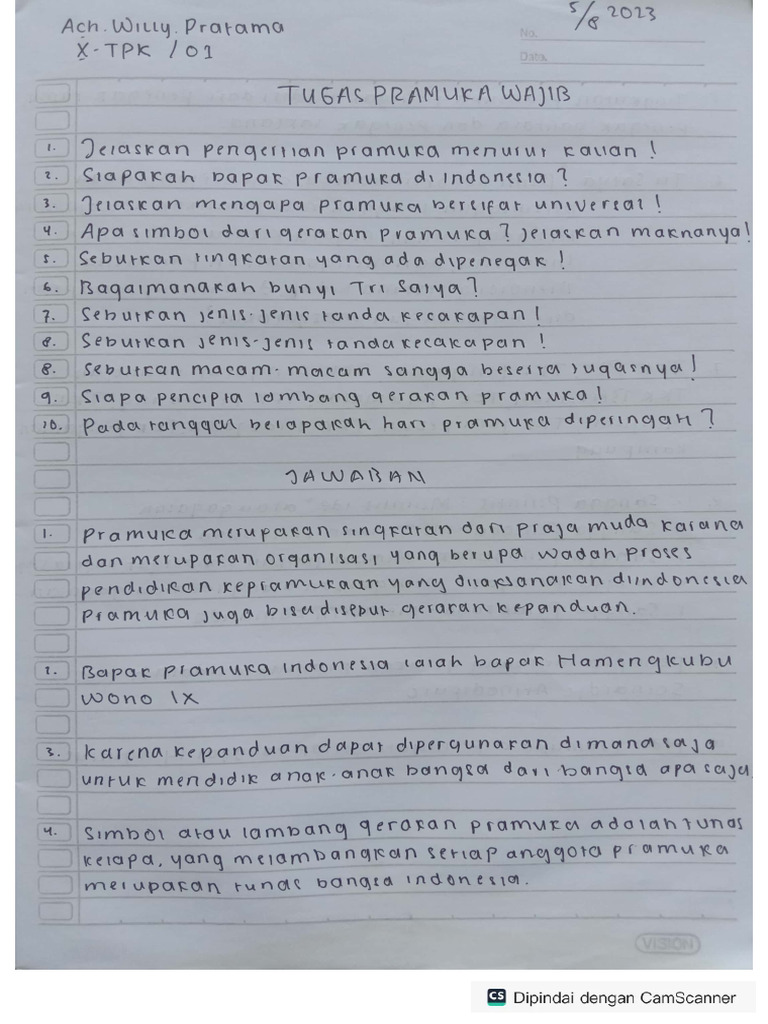 Ach. Willy. Pratama
5/8 2023
X-TPK / 01
No.
Date
TUGAS PRAMUKA WAJIB
1. Jelaskan pengertian pramuka menurut kalian !
2. Siapakah bapak pramuka di indonesia ?
3. Jelaskan mengapa pramuka bersifat universal !
4. Apa simbol dari gerakan pramuka ? jelaskan maknanya !
5. Sebutkan tingkatan yang ada dipenegak !
6. Bagaimanakah bunyi Tri Satya ?
7. Sebutkan jenis-jenis tanda kecakapan !
8. Sebutkan jenis-jenis tanda kecakapan !
8. Sebutkan macam-macam sangga beserta tugasnya !
9. Siapa pencipta lambang gerakan pramuka !
10. Pada tanggal belapakah hari pramuka diperingati ?
JAWABAN
1. Pramuka merupakan singkatan dari praja muda karana
dan merupakan organisasi yang berupa wadah proses
pendidikan kepramukaan yang dilaksanakan diindonesia
Pramuka juga bisa disebut gerakan kepanduan.
2. Bapak pramuka indonesia ialah bapak Hamengkubu
wono IX
3. karena kepanduan dapat dipergunakan dimana saja
untuk mendidik anak-anak bangsa dari bangsa apa saja
4. Simbol atau lambang gerakan pramuka adalah tunas
kelapa, yang melambangkan setiap anggota pramuka
merupakan tunas bangsa indonesia.
VISION
CS Dipindai dengan CamScanner